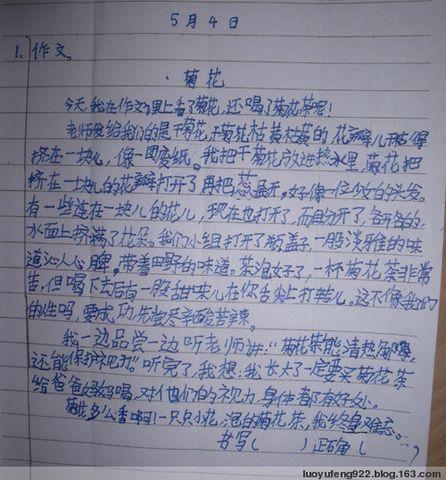 5月4日
1.作文。
·菊花
今天,我在作文课上看了菊花,还喝了菊花茶呢!
老师发给我们的是干菊花,干菊花枯黄枯黄的,花瓣儿干枯得
挤在一块儿,像一团废纸。我把干菊花放进热水里,菊花把
挤在一块儿的花瓣打开了,再把蕊展开。好像一位少女的头发。
有一些连在一块儿的花儿,现在也打开了,而且分开了,各开各的,
水面上挤满了花朵。我们小组打开了瓶盖子,一股淡雅的味
道沁人心脾,带着田野的味道。茶泡好了,一杯菊花茶非常
苦,但喝下去后有一股甜味儿在你舌头上打转儿。这不像我们
的性吗,要成功,先尝尽辛酸苦辣。
我一边品尝一边听老师讲:“菊花茶能清热解
还能保护视力。”听完了,我想:我长大了一定要买菊花茶
给爸爸妈妈喝,对他们的视力、身体都有好处。
菊花多么香啊!一只只小花,泡的菊花茶,我终身难忘。
书写( ) 正确( )
luoyufeng922.blog.163.com